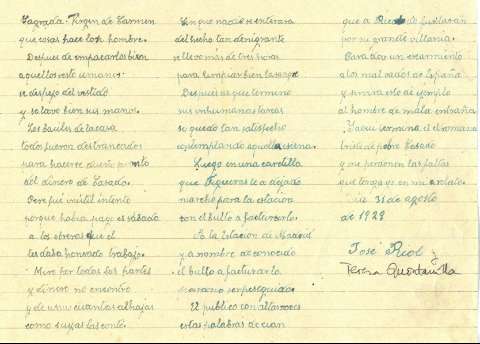 Sagrada Virgen de Carmen
que cosas hace los hombre.
Despues de empacarlos bien
aquellos restos umanos
se despojo del vestido
y se lavo bien sus manos.
Los baules de la casa
todo fueron destrancados
para hacerse dueño pronto
del dinero de Casado.
Pero fué inútil intento
porque habia pago el sábado
a los obreros que el
les daba honrado trabajo.
Miro por todas las partes
y dinero no encontro
y de unas cuantas alhajas
como suyas las conto.
Sin que nadie se enterara
del hecho tan denigrante
se llevo mas de tres horas
para limpiar bien la sangre
Despues de que termino
sus inhumanas tareas
se quedo tan satisfecho
contemplando aquella escena.
Luego en una cartilla
que Figueras le a dejado
marcho para la estacion
con el bulto a facturarlo.
En la Estacion de Madrid
y a nombre de conocido
el bulto a facturarlo
para no ser perseguido.
El publico con altas voces
estas palabras decian
que a Ricardito fusilaran
por su grande villania.
Para dar un escarmiento
a los malvados de España
y sirva esto de ejemplo
al hombre de mala entraña
Y aqui termina el romance
triste de pobre Casado
y me perdonen las faltas
que tenga yo en mi relato.
31 de agosto
de 1929
José Ricol y
Teresa Quintanilla